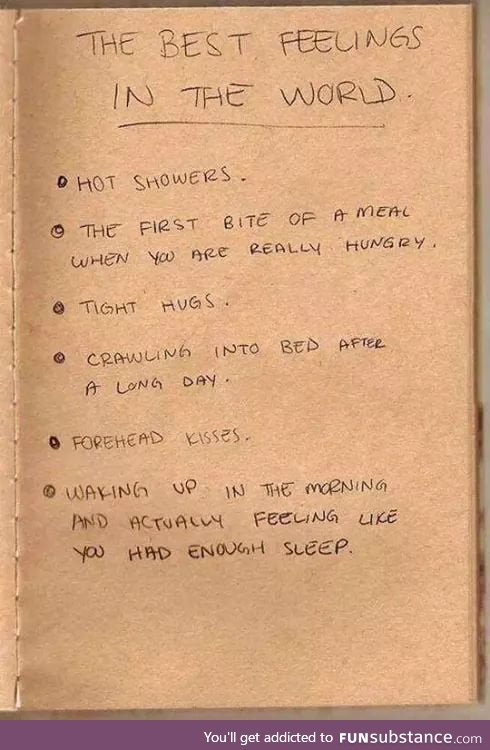 THE BEST FEELINGS
IN THE WORLD.
HOT SHOWERS.
THE FIRST BITE OF A MEAL
WHEN YOU ARE REALLY HUNGRY.
TIGHT HUGS.
CRAWLING INTO BED AFTER
A LONG DAY.
FOREHEAD KISSES.
WAKING UP IN THE MORNING
AND ACTUALLY FEELING LIKE
YOU HAD ENOUGH SLEEP.
You'll get addicted to FUNsubstance.com